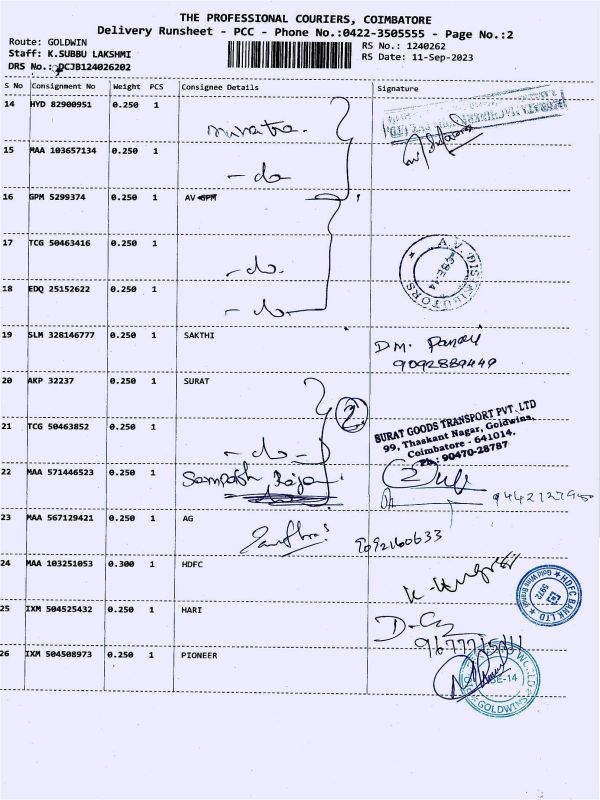 THE PROFESSIONAL COURIERS, COIMBATORE
Delivery Runsheet - PCC - Phone No.:0422-3505555 - Page No.:2
Route: GOLDWIN
Staff: K.SUBBU LAKSHMI
DRS No.: DCJB124026202
RS No.: 1240262
RS Date: 11-Sep-2023
S No Consignment No Weight PCS Consignee Details Signature
14 HYD 82900951 0.250 1
15 MAA 103657134 0.250 1
- do
16 GPM 5299374 0.250 1 AV GPM
17 TCG 50463416 0.250 1
- do.
A.V. DISTRIBUTORS
CBE-14
18 EDQ 25152622 0.250 1
- do
19 SLM 328146777 0.250 1 SAKTHI
D.M.
9092889449
20 AKP 32237 0.250 1 SURAT
2
21 TCG 50463852 0.250 1
- do -
SURAT GOODS TRANSPORT PVT. LTD
99, Thaskant Nagar, Goldwins,
Coimbatore - 641014.
Ph: 90470-28787
22 MAA 571446523 0.250 1 Sampath Raja
23 MAA 567129421 0.250 1 AG
24 MAA 103251053 0.300 1 HDFC
HDFC BANK LTD
5972
25 IXM 504525432 0.250 1 HARI
26 IXM 504508973 0.250 1 PIONEER
GOLDWINS